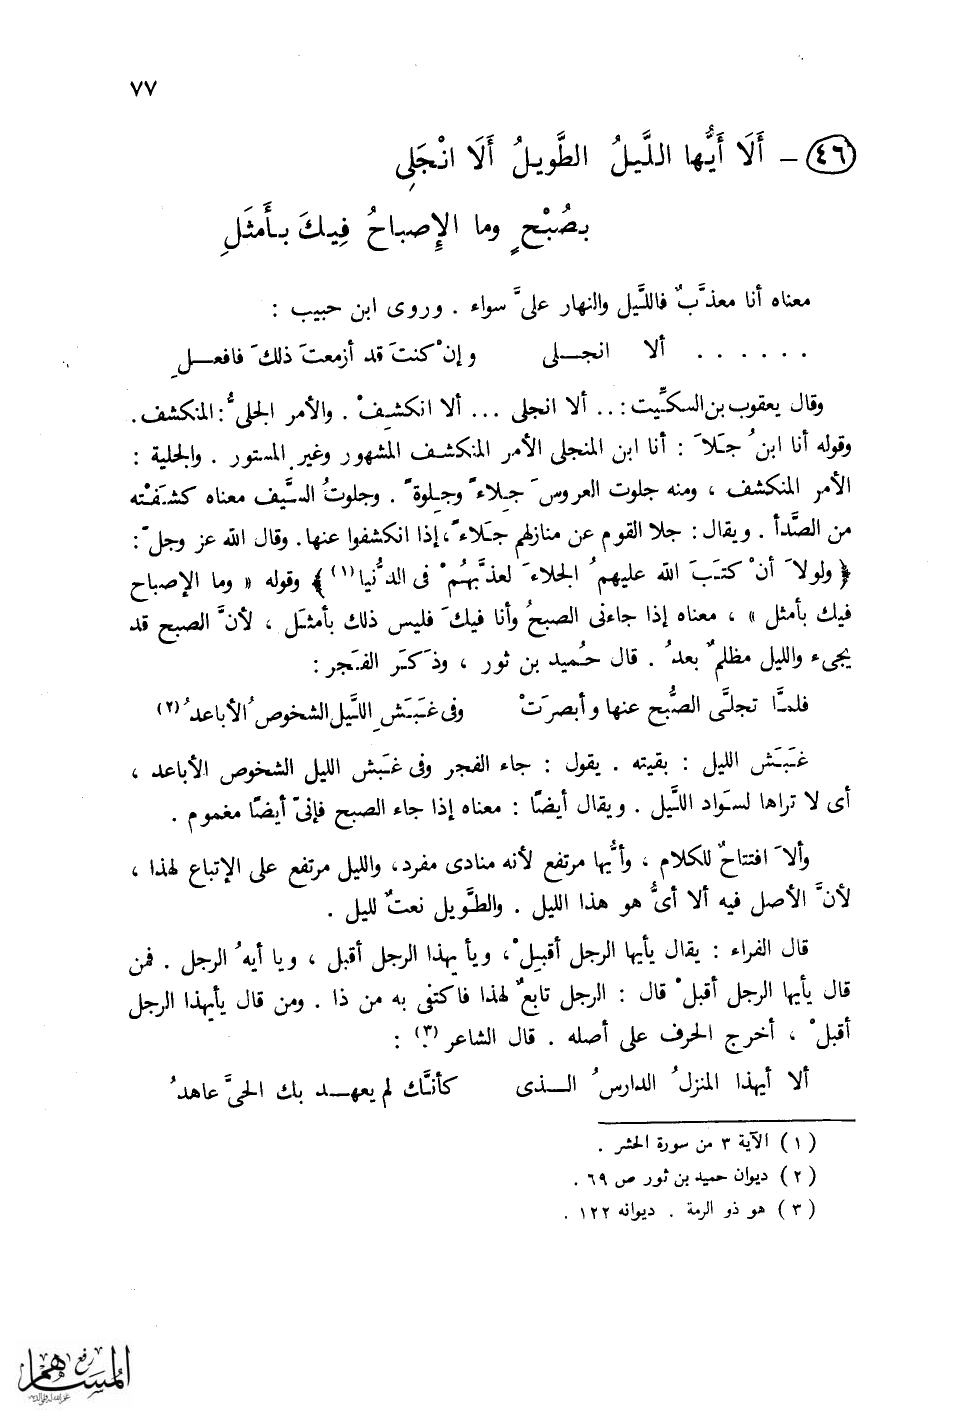 ٧٧
٤٦ – أَلَا أَيُّها اللَّيلُ الطَّويلُ أَلَا انْجَلِى
بصُبْحٍ وما الإِصباحُ فِيكَ بأَمثَلِ
معناه أنا معذَّبٌ فاللَّيل والنهار علىَّ سواء . وروى ابن حبيب :
. . . . . . ألا انجلى وإنْ كنتَ قد أزمعتَ ذلكَ فافعلِ
وقال يعقوب بن السكِّيت : . . ألا انجلى ... ألا انكشِفْ . والأمر الجلىُّ : المنكشف .
وقوله أنا ابنُ جَلاَ : أنا ابن المنجلى الأمر المنكشف المشهور وغير المستور . والجلية :
الأمر المنكشف ، ومنه جلوت العروسَ جِلاءً وجِلوةً . وجلوتُ السَّيف معناه كشَفْته
من الصَّدأ . ويقال : جلا القوم عن منازلهم جَلاءً ، إذا انكشفوا عنها . وقال الله عز وجلّ :
﴿ ولولاَ أنْ كتَبَ الله عليهمُ الجلاءَ لعذَّبَهُمْ فى الدُّنيا (١) ﴾ وقوله « وما الإصباح
فيك بأمثل » ، معناه إذا جاءنى الصبحُ وأنا فيكَ فليس ذلك بأمثَل ، لأنَّ الصبح قد
يجىء والليل مظلمٌ بعدُ . قال حُميد بن ثور ، وذكَرَ الفَجر :
فلمَّا تجلَّى الصُّبح عنها وأبصرَتْ وفى غَبَشِ اللَّيل الشخوصُ الأباعدُ (٢)
غَبَش الليل : بقيته . يقول : جاء الفجر وفى غبَش الليل الشخوص الأباعد ،
أى لا تراها لسوَاد اللَّيل . ويقال أيضًا : معناه إذا جاء الصبح فإنىّ أيضًا مغموم .
وألاَ افتتاحٌ للكلام ، وأيُّها مرتفع لأنه منادى مفرد ، والليل مرتفع على الإتباع لهذا ،
لأنَّ الأصل فيه ألا أىُّ هو هذا الليل . والطَّويل نعتٌ لليل .
قال الفراء : يقال يأيها الرجل أقبِلْ ، ويأيهذا الرجل أقبل ، ويا أيهُ الرجل . فمن
قال يأيها الرجل أقبلْ قال : الرجل تابعٌ لهذا فاكتفى به من ذا . ومن قال يأيهذا الرجل
أقبلْ ، أخرج الحرف على أصله . قال الشاعر (٣) :
ألا أيهذا المنزلُ الدارسُ الذى كأنَّك لم يعهد بك الحىَّ عاهدُ
( ١ ) الآية ٣ من سورة الحشر .
( ٢ ) ديوان حميد بن ثور ص ٦٩ .
( ٣ ) هو ذو الرمة . ديوانه ١٢٢ .